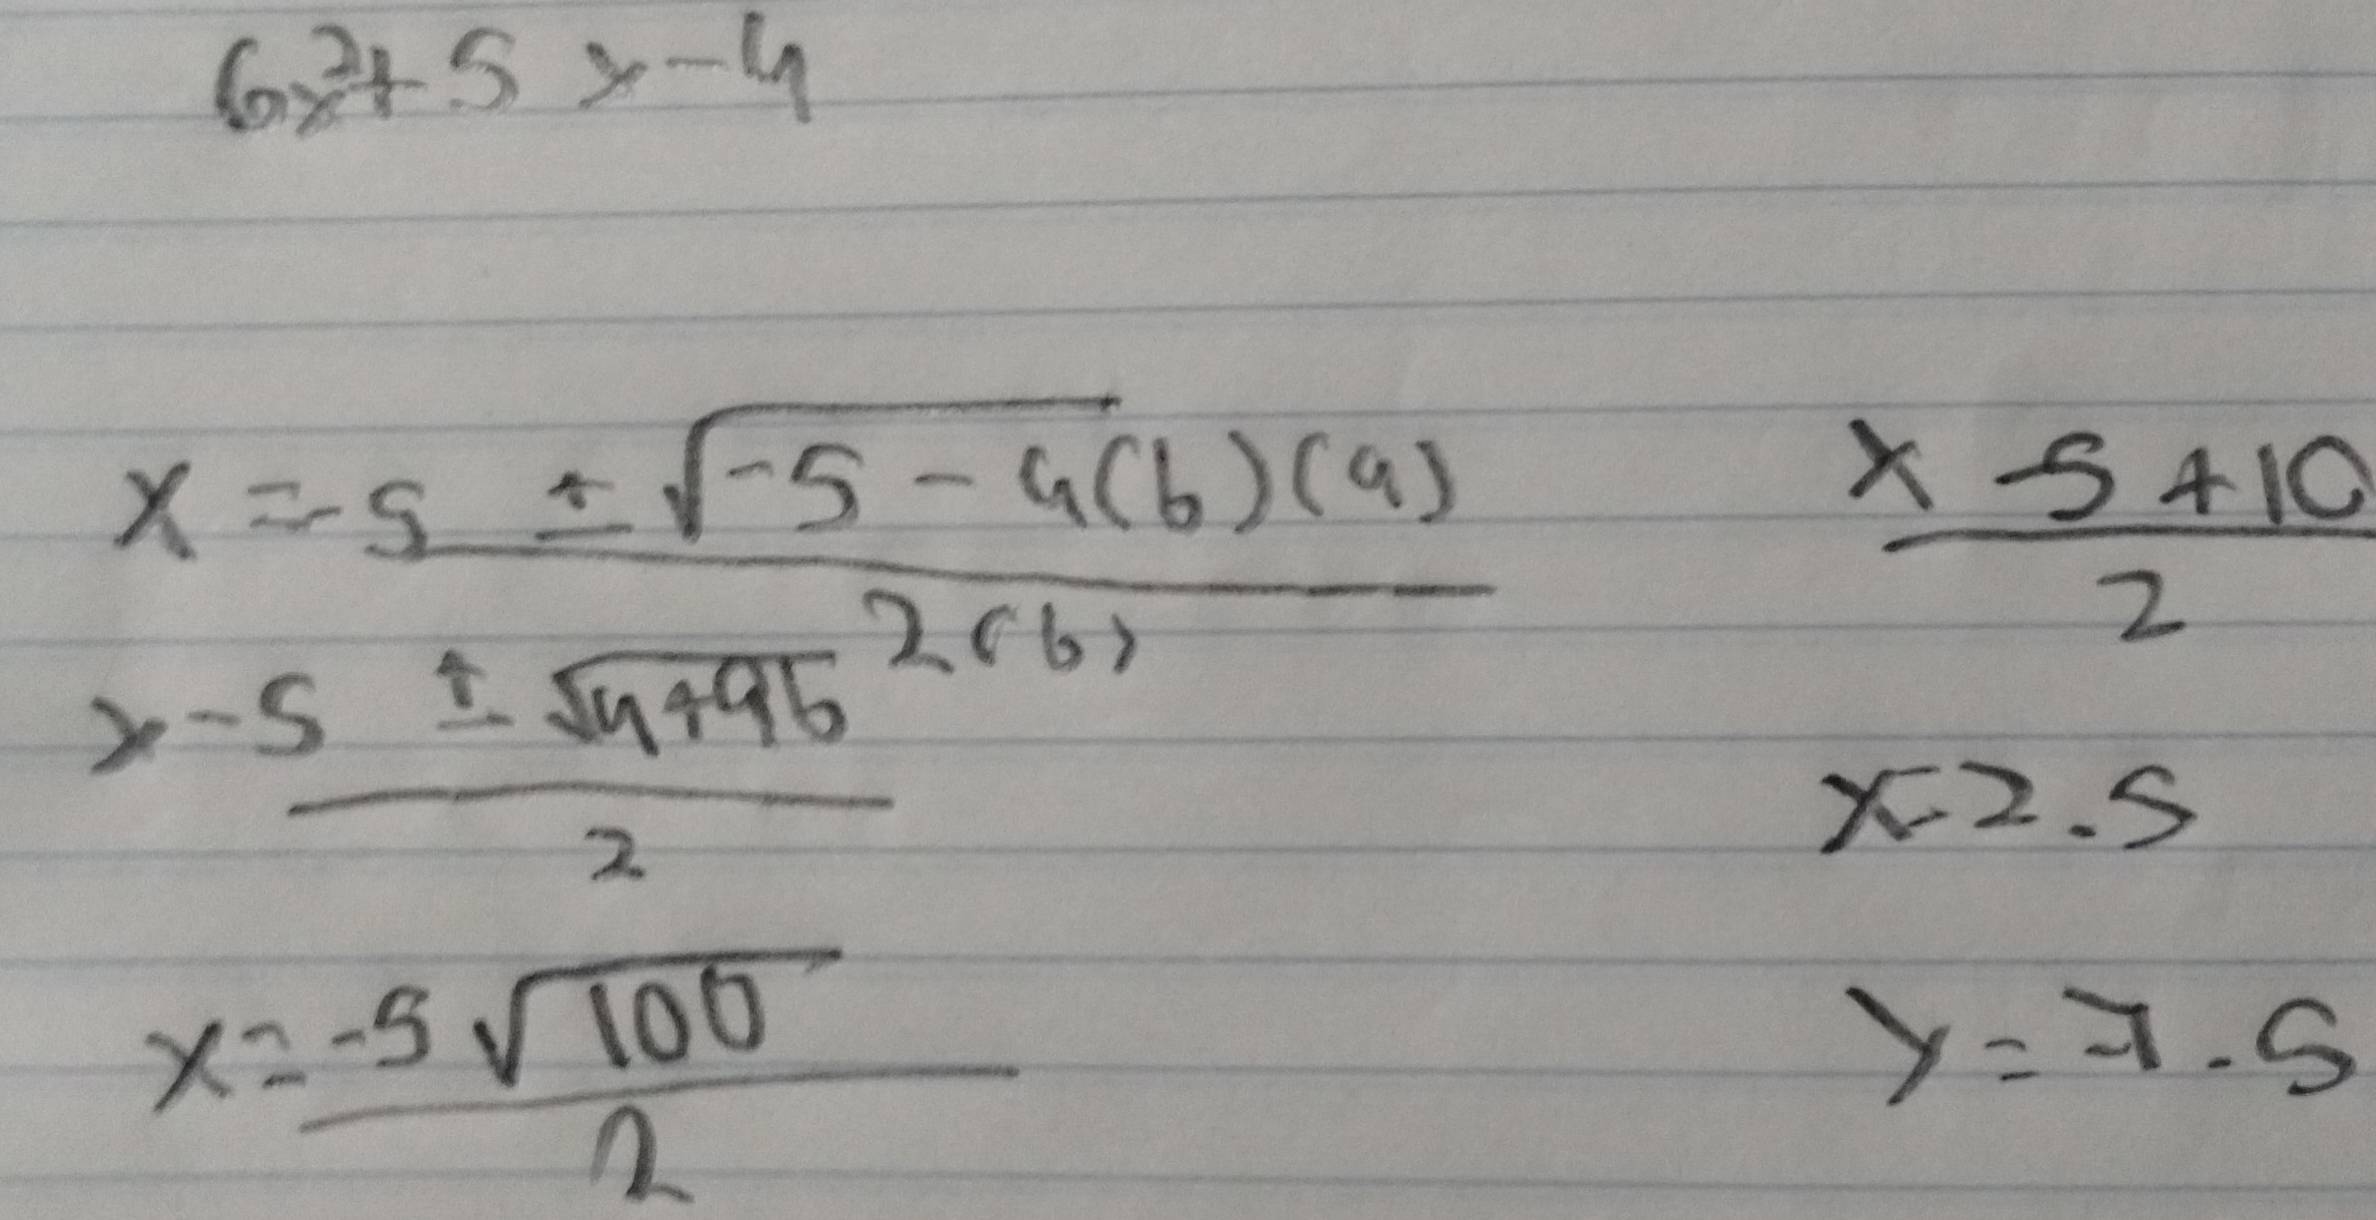 6x²+5x-4
x=-5 ± √-5-4(6)(4)
2(6)
x-5 ± √4+96
2
x=-5√100
2
x -5+10
2
x=2.5
x=-7.5